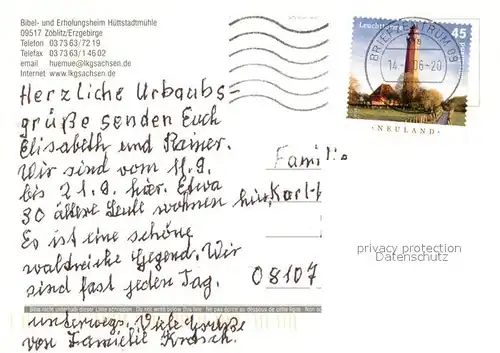 Bibel- und Erholungsheim Hüttstadtmühle
09517 Zöblitz/Erzgebirge
Telefon 0 37 63/72 19
Telefax 0 37 63/1 46 02
email huemue@lkgsachsen.de
Internet www.lkgsachsen.de
45
BRIEFZENTRUM 09
NEULAND
Herzliche Urlaubs=
grüße senden Euch
Elisabeth und Rainer.
Wir sind vom 11.9.
bis 21.9. hier. Etwa
30 ältere Leute wohnen hier,
Es ist eine schöne
waldreiche Gegend. Wir
sind fast jeden Tag.
unterwegs. Viele Grüße
von Familie
Familie
Karl-
08107
privacy protection
Datenschutz
Bitte nicht unterhalb dieser Linie schreiben · Do not write below this line · Ne pas écrire au dessous de cette ligne